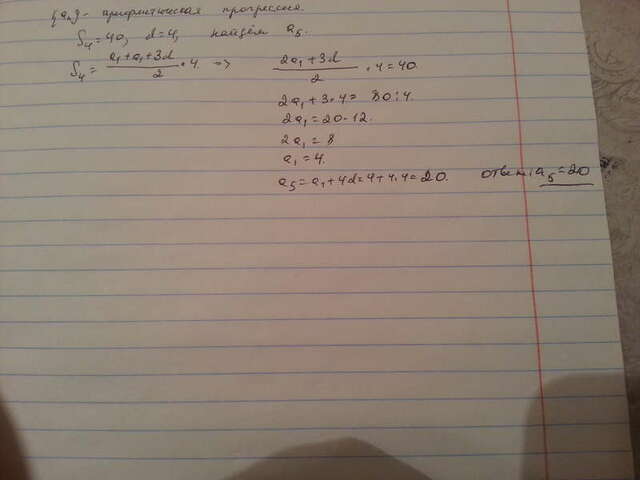 {aₙ} - арифметическая прогрессия.
S₄=40, d=4, найдём a₅.
S₄ = (a₁+a₁+3d)/2 • 4 => (2a₁+3d)/2 • 4 = 40.
2a₁+3•4 = 80:4.
2a₁ = 20-12.
2a₁ = 8
a₁ = 4.
a₅ = a₁+4d = 4+4•4 = 20. ответ: a₅ = 20